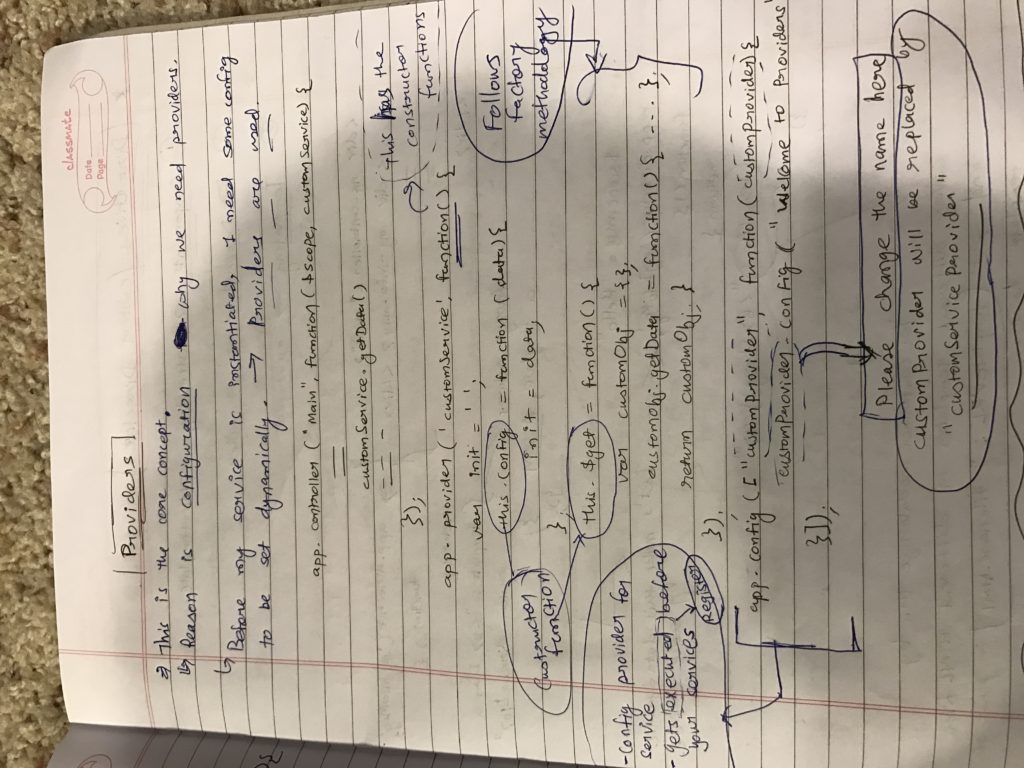 classmate
Date
Page
Providers
⇒ This is the core concept.
↳ Reason is configuration why we need providers.
↳ Before my service is instantiated, I need some config
to be set dynamically. → Providers are used.
app.controller("Main", function($scope, customService){
customService.getData()
});
This has the
constructor
functions
app.provider('customService', function(){
var init = ' ';
this.config = function(data){
init = data;
}
Constructor
function
Follows
factory
methodology
this.$get = function(){
var customObj = {};
customObj.getData = function(){ .... };
return customObj. }
});
- config provider for
service
- gets executed before
your services
Register
app.config(["customProvider", function(customProvider){
customProvider.config("Welcome to providers'
}]);
Please change the name here
customProvider will be replaced by
"customServiceProvider"